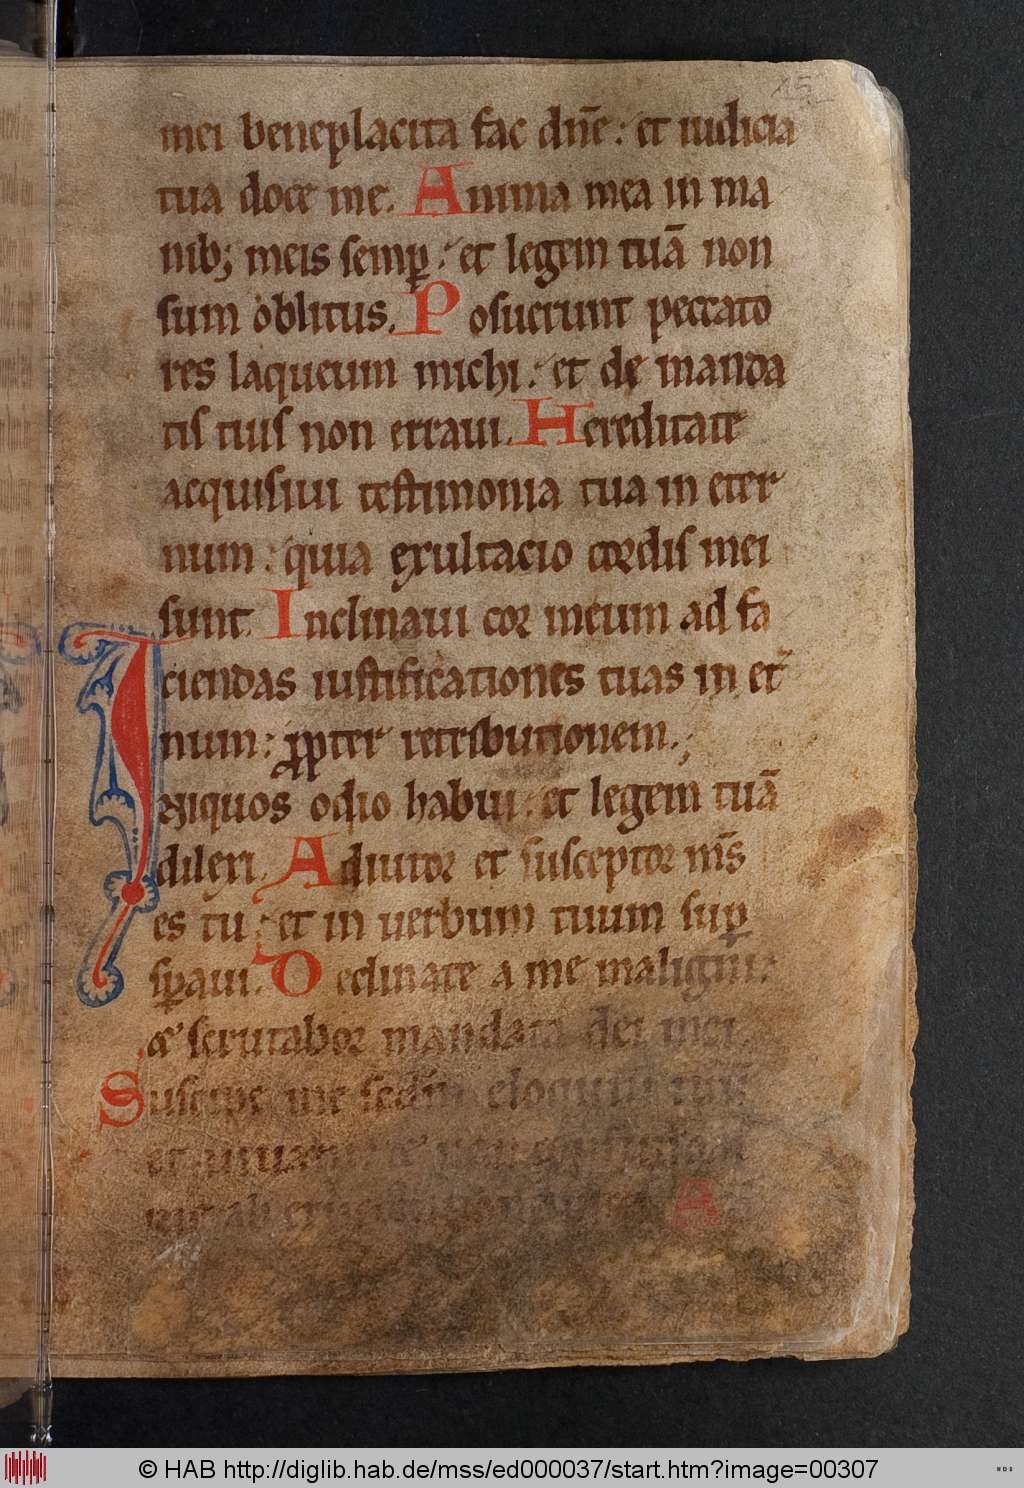 15
mei beneplacita fac dn̄e : et iudicia
tua doce me. Anima mea in ma
nib; meis semꝑ : et legem tuā non
sum oblitus. Posuerunt peccato
res laqueum michi : et de manda
tis tuis non erraui. Hereditate
acquisiui testimonia tua in eter
num : quia exultacio cordis mei
sunt. Inclinaui cor meum ad fa
ciendas iustificationes tuas in et̄
num : propter retributionem.
Iniquos odio habui : et legem tuā
dilexi. Adiutor et susceptor m̄s
es tu : et in uerbum tuum suꝑ
sꝑaui. Declinate a me maligni :
& scrutabor mandata dei mei.
Suscipe me sedm̄ eloquiū tuū
et uiuam et non confundas
me ab expectatione mea A
© HAB http://diglib.hab.de/mss/ed000037/start.htm?image=00307